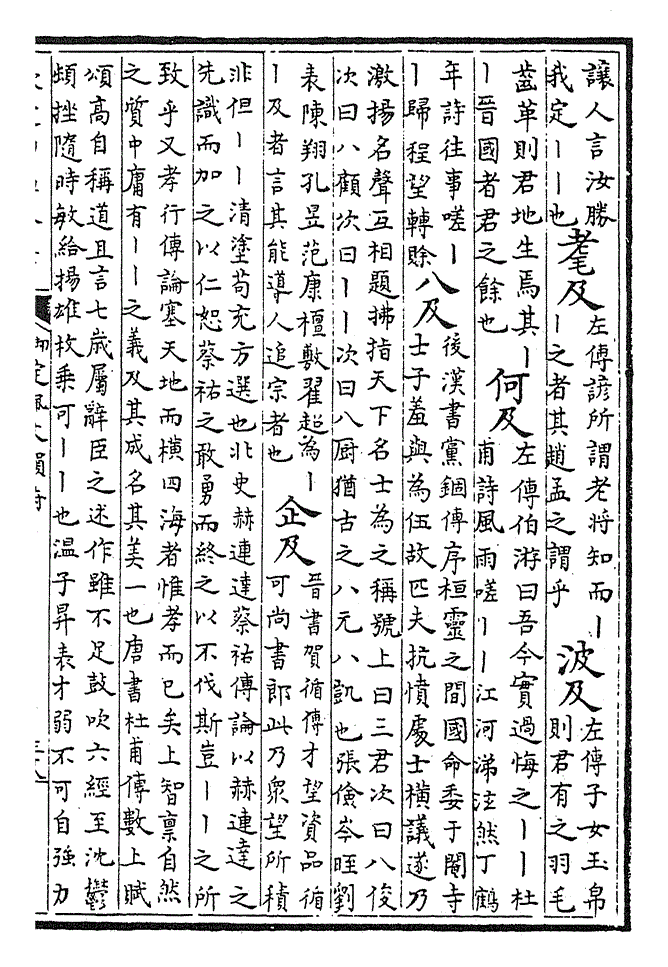 讓人言汝勝
我定丨丨也
耄及
左傳諺所謂老將知而丨
丨之者其趙孟之謂乎
波及
左傳子女玉帛
則君有之羽毛
齒革則君地生焉其丨
丨晉國者君之餘也
何及
左傳伯游曰吾今實過悔之丨丨杜
甫詩風雨嗟丨丨江河涕泣然丁鶴
年詩往事嗟丨
丨歸程望轉賒
八及
後漢書黨錮傳序桓靈之間國命委于閹寺
士子羞與為伍故匹夫抗憤處士橫議遂乃
激揚名聲互相題拂指天下名士為之稱號上曰三君次曰八俊
次曰八顧次曰丨丨次曰八厨猶古之八元八凱也張儉岑晊劉
表陳翔孔昱范康檀敷翟超為丨
丨及者言其能導人追宗者也
企及
晉書賀循傳才望資品循
可尚書郎此乃衆望所積
非但丨丨清塗苟充方選也北史赫連達蔡祐傳論以赫連達之
先識而加之以仁恕蔡祐之敢勇而終之以不伐斯豈丨丨之所
致乎又孝行傳論塞天地而橫四海者惟孝而已矣上智禀自然
之質中庸有丨丨之義及其成名其美一也唐書杜甫傳數上賦
頌高自稱道且言七歲屬辭臣之述作雖不足鼓吹六經至沈鬱
頓挫隨時敏給揚雄枚乘可丨丨也温子昇表才弱不可自強力